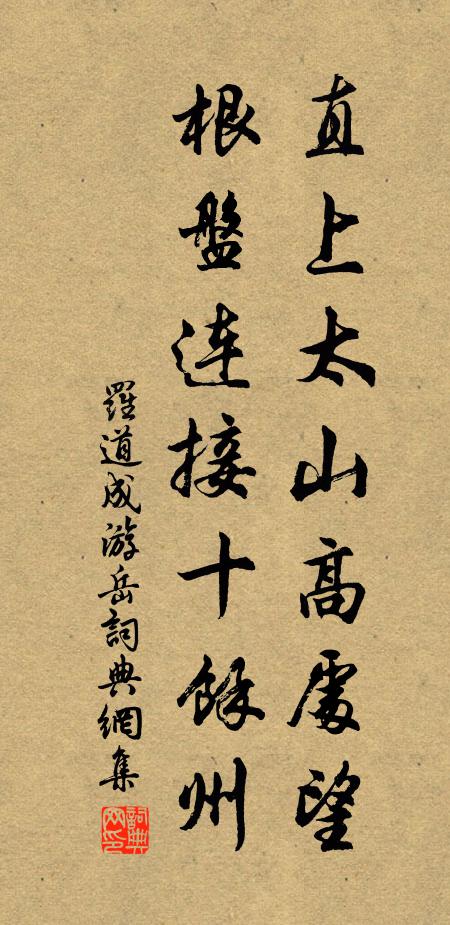 直上太山高處望
根盤连接十餘州
羅道成游岳詞典網集
詞典网印